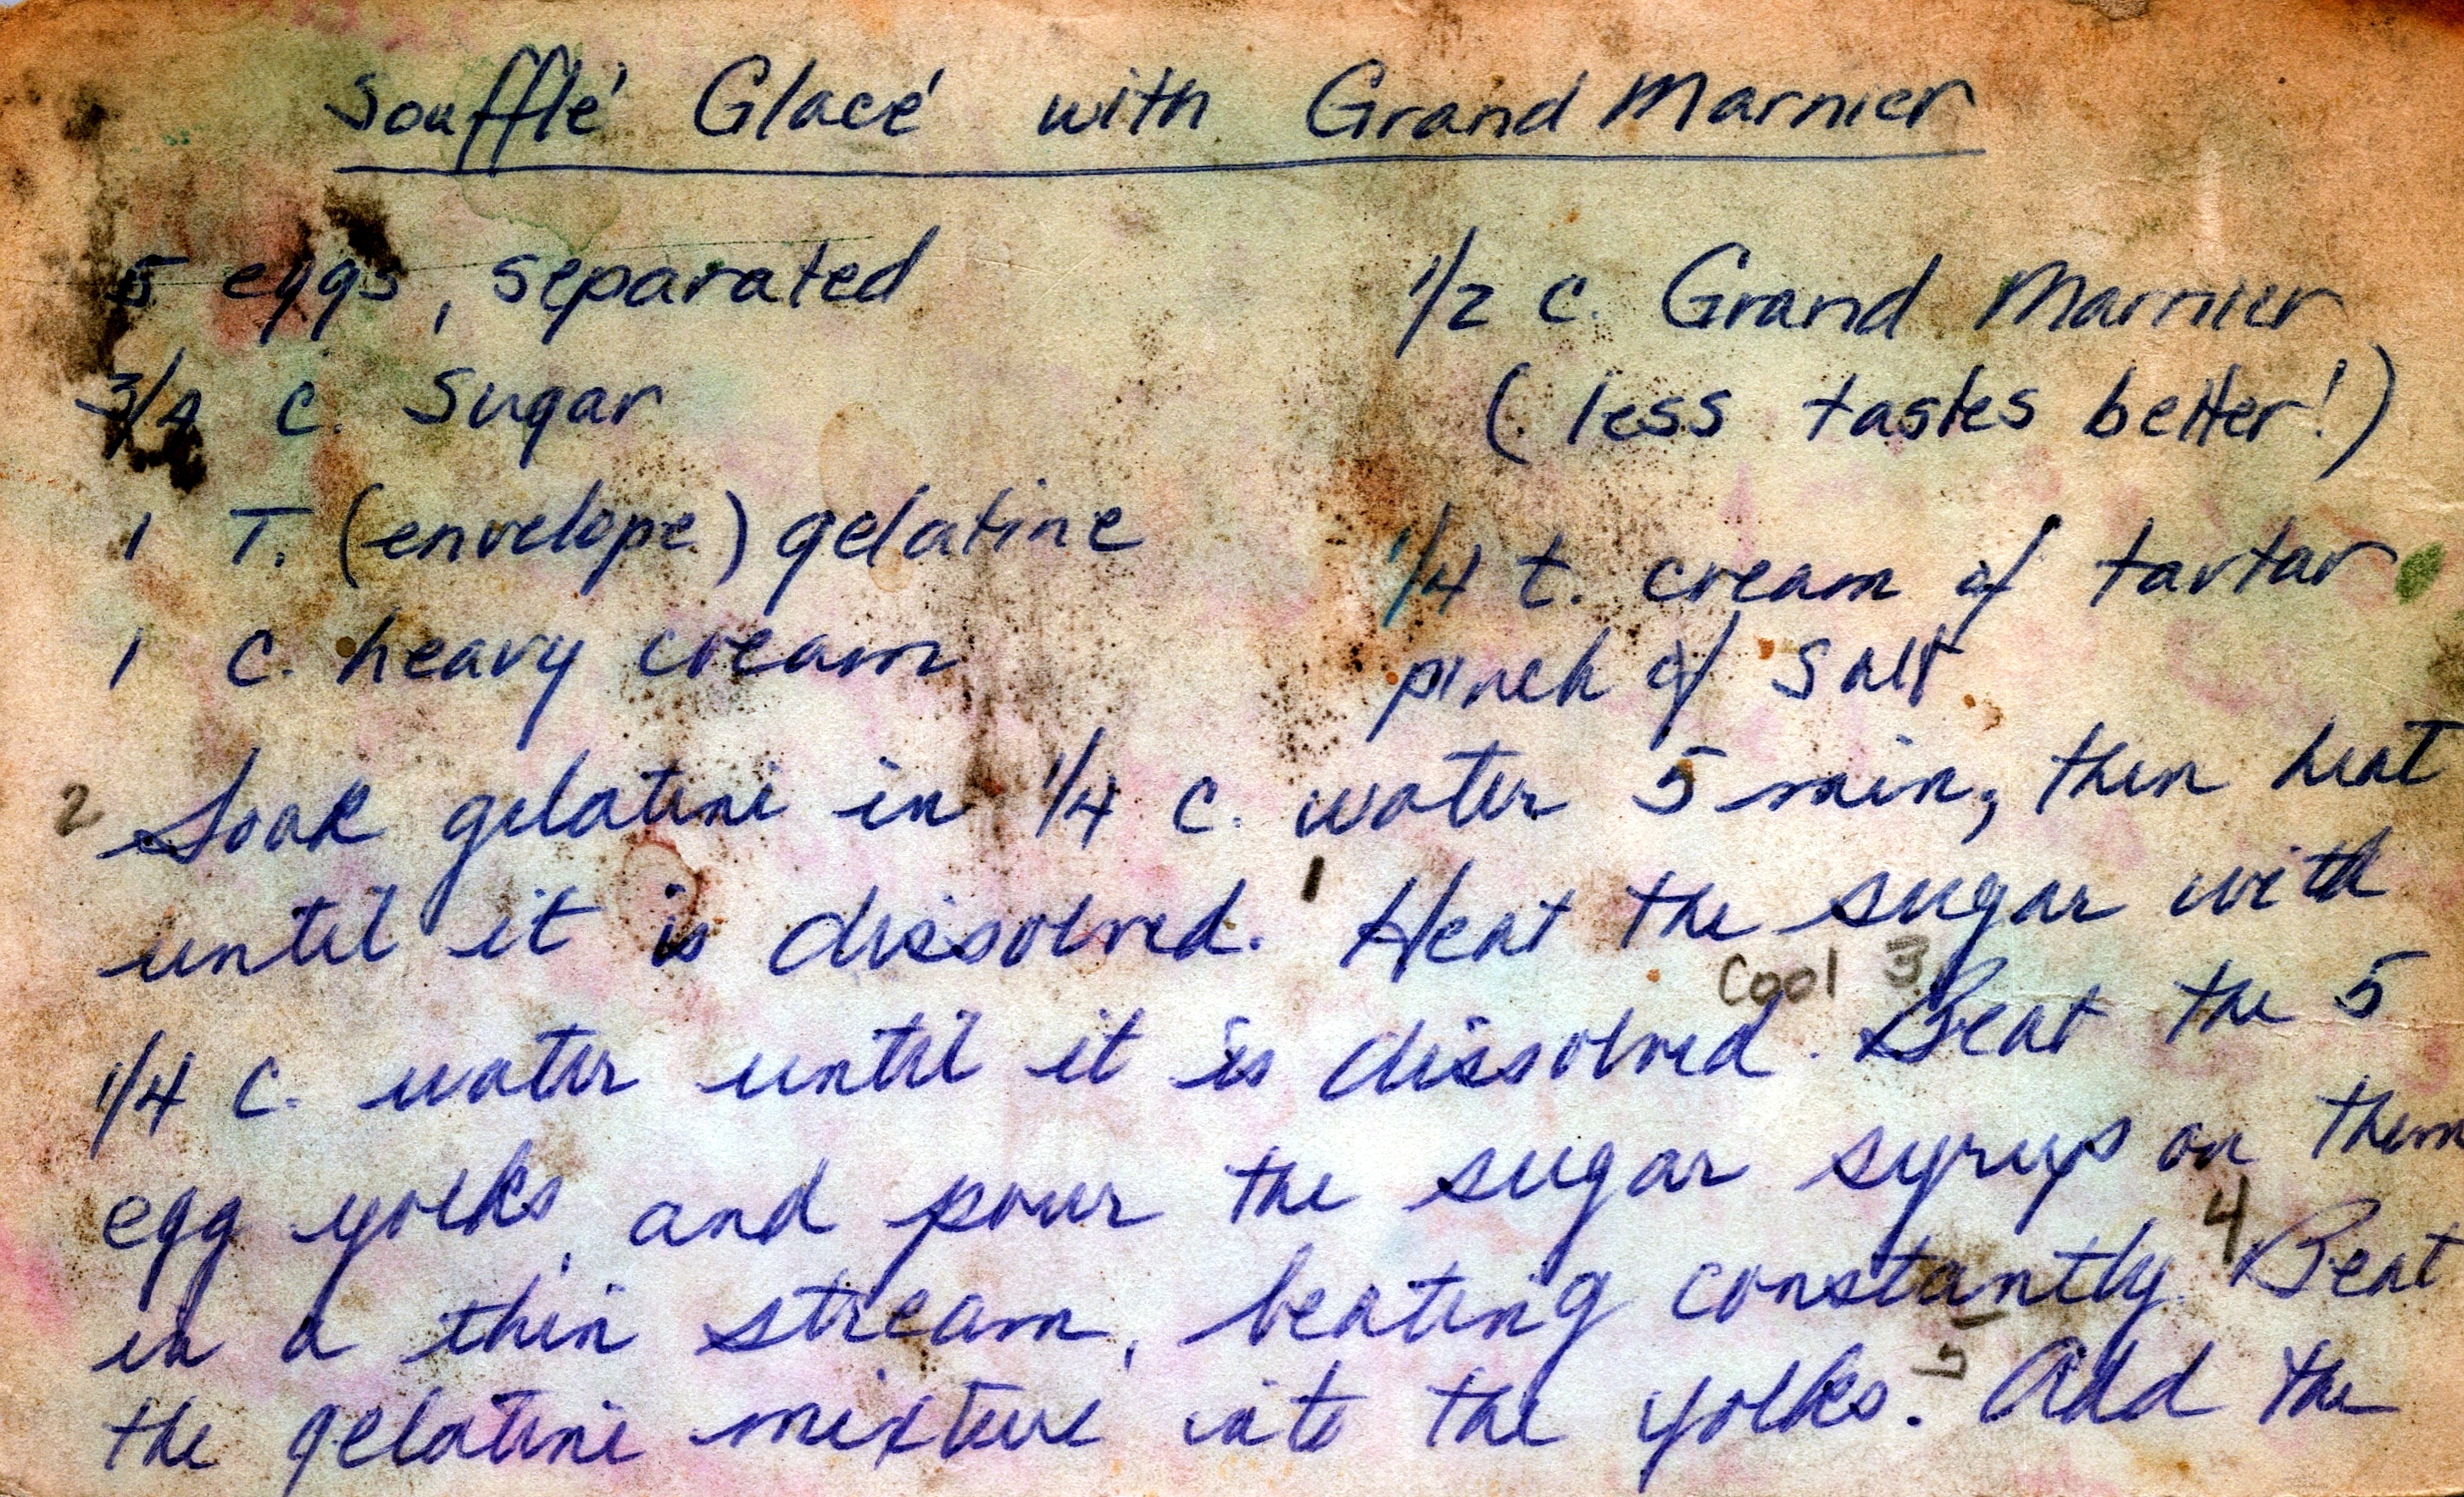 Soufflé Glacé with Grand Marnier
5 eggs, separated
3/4 c. Sugar
1 T. (envelope) gelatine
1 c. heavy cream
1/2 c. Grand Marnier
(less tastes better!)
1/4 t. cream of tartar
pinch of salt
2 Soak gelatine in 1/4 c. water 5 min, then heat
until it is dissolved. 1 Heat the sugar with
Cool 3
1/4 c. water until it is dissolved. Beat the 5
egg yolks, and pour the sugar syrup on them
4
in a thin stream, beating constantly. Beat
5
the gelatine mixture into the yolks. Add the